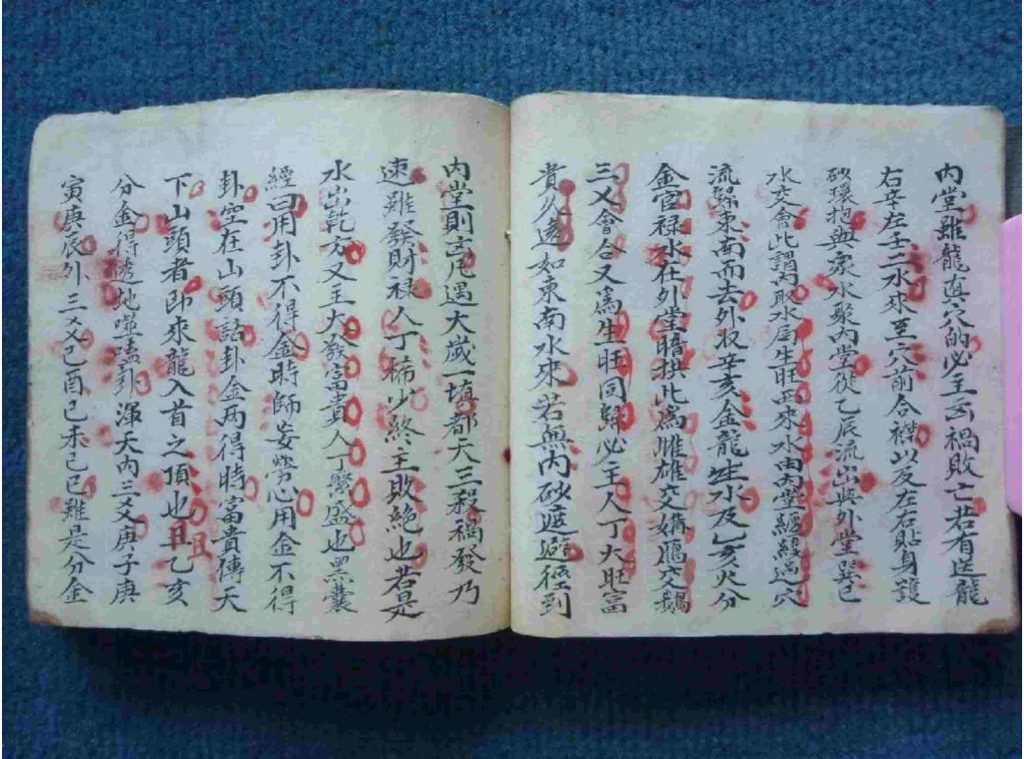 內堂雖龍真穴的必主云禍敗亡若有送龍
右辛左壬二水來至穴前合襟以及左右貼身護
砂環抱與衆水聚內堂從乙辰流出與外堂巽巳
水交會此謂內取水局生旺正來水由內堂纏繞過穴
流歸東南而去外收辛亥金龍生水及乙亥火分
金官禄水在外堂暗拱此爲雌雄交媾
三叉會合又爲生旺同歸必主人丁大旺富
貴久遠如東南水來若無內砂遮避徑到
內堂則吉凡遇大歲一填都天三殺禍發乃
速雖發財禄人丁稀少終主敗絶也若是
水出乾方又主大發富貴人丁繁盛也黑囊
經曰用卦不得金時師妄勞心用金不得
卦空在山頭詰卦金两得時富貴傳天
下山頭者即來龍入首之頂也且乙亥
分金得透地噬嗑卦渾天內三爻庚子庚
寅庚辰外三爻己酉己未己巳雖是分金